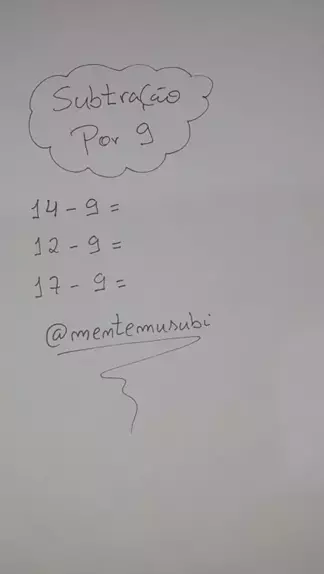 Subtração
Por 9
14 - 9 =
12 - 9 =
17 - 9 =
@mentemusubi